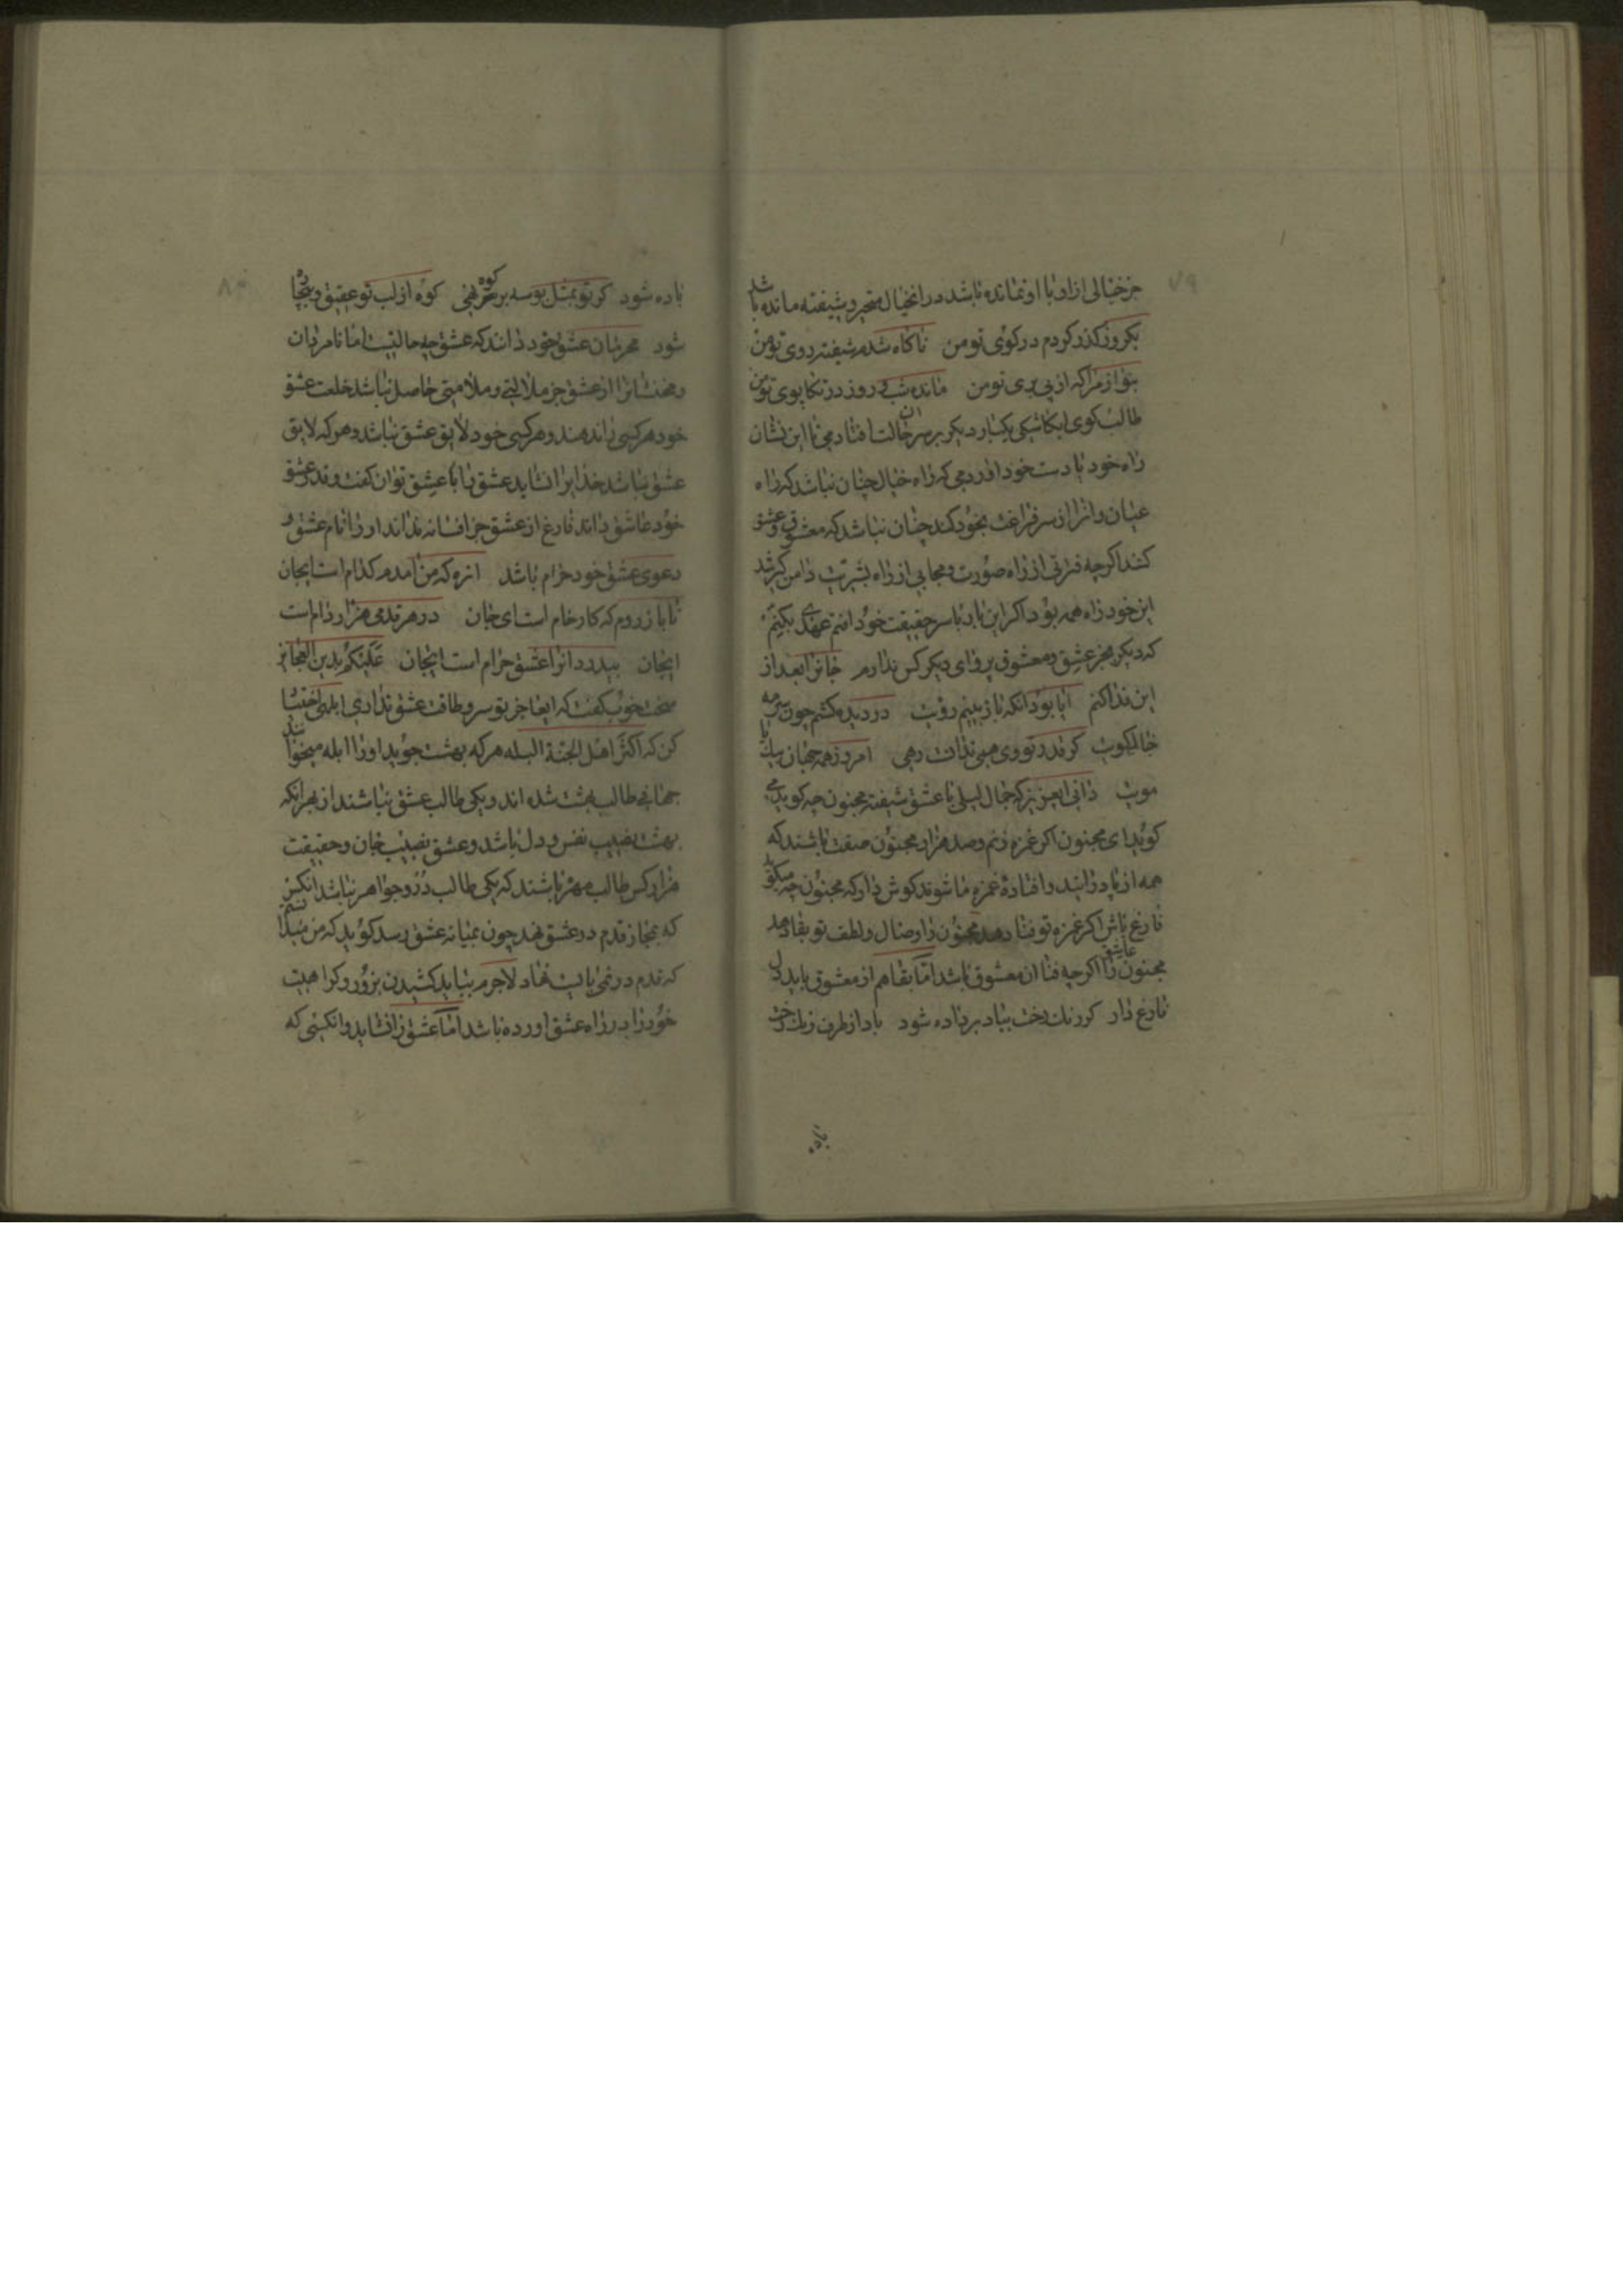 ۷۹
جز خیالی از او با او نمانده باشد در آنخیال متحیر و شیفته مانده باشد
یکروز گذر کردم در کوی تو من ناگاه شدم شیفته روی تو من
بنواز مرا که از پی بوی تو من مانده شب و روز در تکاپوی تو من
طالب کوی ایکاشکی یکبار دیگر بر سر آن حالت افتادمی تا این نشان
راه خود با دست خود آوردمی که راه خیال چنان نباشد که راه
عیان و انرا از سر فراغت بخود کند چنان نباشد که معشوق و عشق
کند اگرچه فرقتی از راه صورت و حجابی از راه بشریت دامن گیر شد
این خود راه همه بود اگر این بار با سر حقیقت خود افتم عهدی بکنم
که دیگر بجز عشق و معشوق پروای دیگر کس ندارم جانرا بعد از
این فدا کنم آیا بود آنکه باز بینم رویت در دیده کشم چون سرمه
خاک کویت گر قدر تو وی همی ندانست رهی امروز همه جهان و یک تا
مویت دانی ای عزیز که جمال لیلی با عشق شیفته مجنون چه گوید می
گوید ای مجنون اگر غمزه زنم و صد هزار مجنون صفت باشند که
همه از پا درآیند و افتاده غمزه ما شوند گوش دار که مجنون چه میگوید
فارغ باش اگر غمزه تو فنا دهد مجنون را وصال و لطف تو بقا دهد
مجنون عاشق را اگرچه فنا از معشوق باشد اما بقا هم از معشوق یابد دل
فارغ دار گر رنگ رخت بباد بر داده شود باد از طرف رنگ رخت
باده
۸۰
باده شود گر تو بمثل بوسه بر کوه زنی کوه از لب تو عقیق و بیجاده
شود محرمان عشق خود دانند که عشق چه حالتیست اما نامردان
و مخنثانرا از عشق جز ملالتی و ملامتی حاصل نباشد خلعت عشق
خود هر کسی را ندهند و هر کسی خود لایق عشق نباشد و هر که لایق
عشق نباشد خدایرا نشاید عشق را با عشق توان گفت و قدر عشق
خود عاشق داند فارغ از عشق جز افسانه نداند او را نام عشق و
دعوی عشق خود حرام باشد آنره که من آمدم کدام است ایجان
تا باز روم که کار خام است ای جان در هر قدمی هزار دام است
ایجان بیدردانرا عشق حرام است ایجان علیکم بدین العجائز
سخت خوب گفت که ایعاجز تو سر و طاقت عشق نداری ابلهی اختیار
کن که اکثر اهل الجنة البله هر که بهشت جوید او را ابله میخوانند
جهانی طالب بهشت شده اند و یکی طالب عشق نباشند از بهر آنکه
بهشت نصیب نفس و دل باشد و عشق نصیب جان و حقیقت
هزار کس طالب مهره باشند که یکی طالب در و جواهر نباشد آنکس
که بمجاز قدم در عشق نهد چون بمیانه عشق رسد گوید که من ندانستم
که قدم در نمی بایست نهاد لاجرم بباید کشیدن بزور و کراهیت
خود را در راه عشق آورده باشد اما عشق را نشاید و آنکسی که